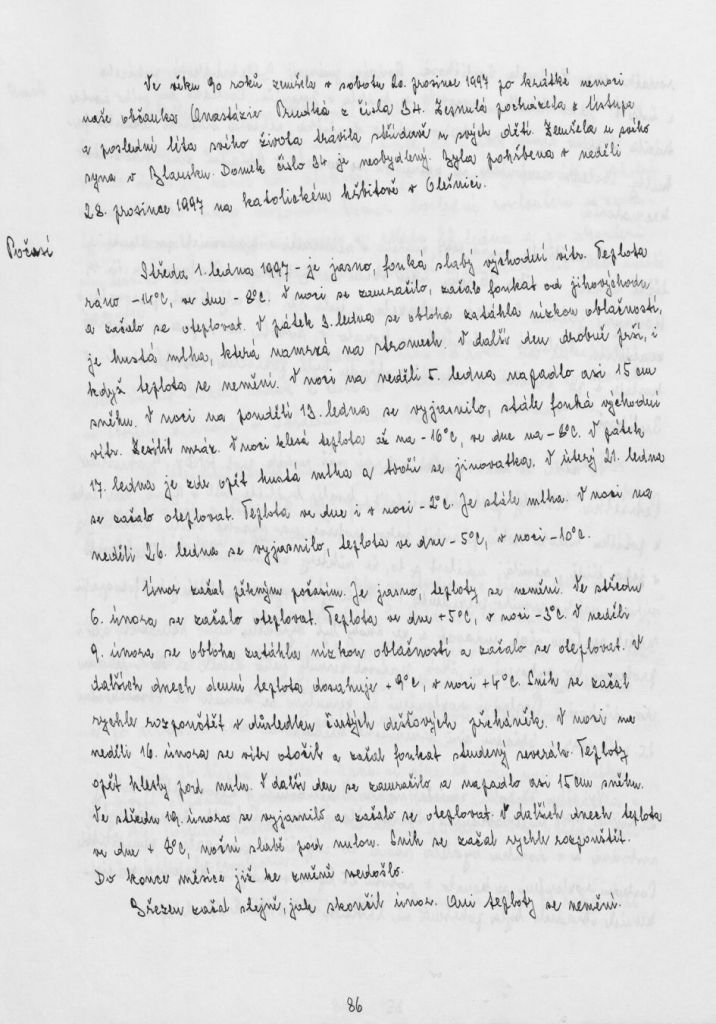 Ve věku 90 roků zemřela v sobotu 20. prosince 1997 po krátké nemoci
naše občanka Anastázie Prudká z čísla 34. Zesnulá pocházela z Lístupa
a poslední léta svého života trávila střídavě u svých dětí. Zemřela u svého
syna v Blansku. Domek číslo 34 je neobydlený. Byla pohřbena v neděli
28. prosince 1997 na katolickém hřbitově v Olešnici.
Počasí
Středa 1. ledna 1997 - je jasno, fouká slabý východní vítr. Teplota
ráno -14°C, ve dne -8°C. V noci se zamračilo, začalo foukat od jihovýchodu
a začalo se oteplovat. V pátek 3. ledna se obloha zatáhla nízkou oblačností,
je hustá mlha, která namrzá na stromech. V další den drobně prší, i
když teplota se nemění. V noci na neděli 5. ledna napadlo asi 15 cm
sněhu. V noci na pondělí 13. ledna se vyjasnilo, stále fouká východní
vítr. Zesílil mráz. V noci klesá teplota až na -16°C, ve dne na -8°C. V pátek
17. ledna je zde opět hustá mlha a tvoří se jinovatka. V úterý 21. ledna
se začalo oteplovat. Teplota ve dne i v noci -2°C. Je stále mlha. V noci na
neděli 26. ledna se vyjasnilo, teplota ve dne -5°C, v noci -10°C.
Únor začal pěkným počasím. Je jasno, teploty se nemění. Ve středu
6. února se začalo oteplovat. Teplota ve dne +5°C, v noci -3°C. V neděli
9. února se obloha zatáhla nízkou oblačností a začalo se oteplovat. V
dalších dnech denní teplota dosahuje +9°C, v noci +4°C. Sníh se začal
rychle rozpouštět v důsledku častých dešťových přeháněk. V noci na
neděli 16. února se vítr otočil a začal foukat studený severák. Teploty
opět klesly pod nulu. V další den se zamračilo a napadlo asi 15 cm sněhu.
Ve středu 19. února se vyjasnilo a začalo se oteplovat. V dalších dnech teplota
ve dne +8°C, noční slabě pod nulou. Sníh se začal rychle rozpouštět.
Do konce měsíce již ke změně nedošlo.
Březen začal stejně, jak skončil únor. Ani teploty se nemění.
86